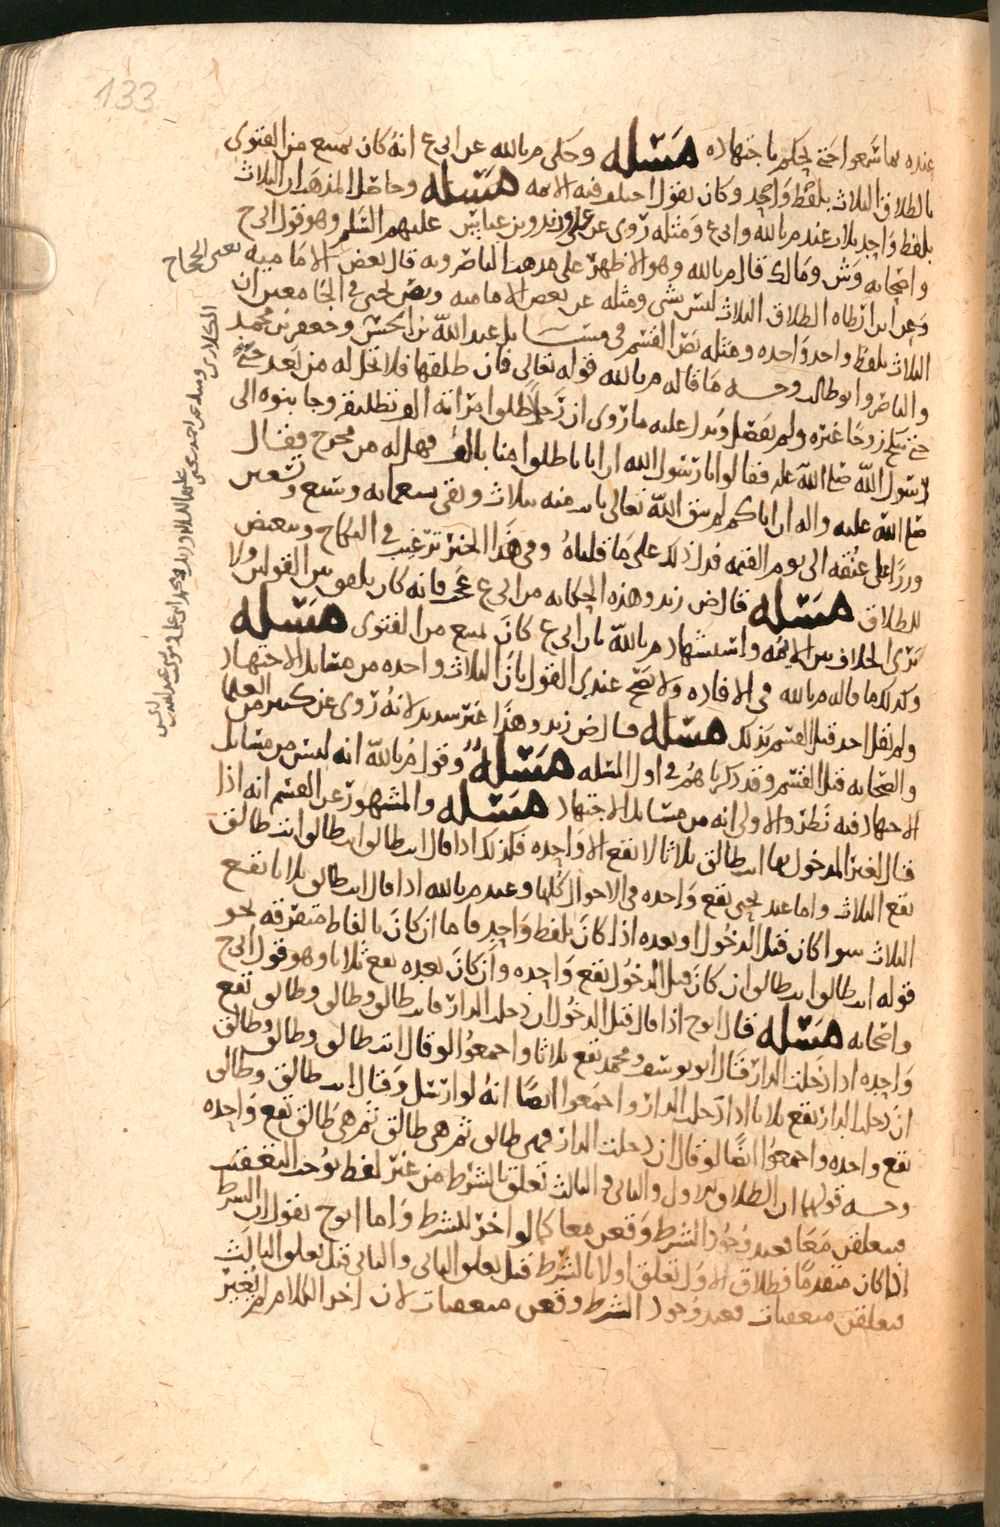 133
عنده بما شهدوا حتى يحكم باجتهاده مسئله وحكى م بالله عن ابي ع انه كان يمنع من الفتوى
بالطلاق الثلاث بلفظ واحد وكان يقول اختلف فيه الامه مسئله وحاصل المذهب ان الثلاث
بلفظ واحد ثلاث عند م بالله وابي ع ومثله روى عن علي وزيد وبن عباس عليهم السلم وهو قول ابي ح
واصحابه وش ومالك قال م بالله وهو الاظهر على مذهب الناصر وبه قال بعض الاماميه
الطلاق الثلاث ليس بشي ومثله عن بعض الاماميه ونص يحيى في الجامعين ان
الثلاث بلفظ واحد واحده ومثله نص القسم في مسائل عبد الله بن الحسن وجعفر بن محمد
والناصر وابو طالب وجه ما قاله م بالله قوله تعالى فان طلقها فلا تحل له من بعد حتى
حتى تنكح زوجا غيره ولم يفصل ويدل عليه ما روى ان رجلا طلق امراته الف تطليقه وجا بنوه الى
رسول الله صلى الله عليه فقالوا يا رسول الله ان ابانا طلق امنا بالف فهل له من مخرج فقال
صلى الله عليه واله ان اباكم لم يتق الله تعالى بانت منه بثلاث وبقي تسعمايه وسبع وتسعين
وزرا على عنقه الى يوم القيمه فدل ذلك على ما قلناه وفي هذا الخبر ترغيب في النكاح وتبغيض
للطلاق مسئله قال ض زيد وهذه الحكايه من ابي ع فانه كان بين القولين ولا
يرى الخلاف بين الايمه واستشهاد م بالله بان ابي ع كان يمنع من الفتوى مسئله
وكذلك ما قاله م بالله في الافاده ولا يصح عندي القول بان الثلاث واحده من مسائل الاجتهاد
ولم يقل احد قبل القسم بذلك مسئله قال ض زيد وهذا غير سديد لانه روى عن كثير من العلما
والصحابه قبل القسم وقد ذكرناهم في اول المسله مسئله وقول م بالله انه ليس من مسائل
الاجتهاد فيه نظر والاولى انه من مسائل الاجتهاد مسئله والمشهور عن القسم انه اذا
قال لغير المدخول بها انت طالق ثلاثا لا يقع الا واحده فكذلك اذا قال انت طالق انت طالق انت طالق
يقع الثلاث واما عند يحيى يقع واحده في الاحوال كلها وعند م بالله اذا قال انت طالق ثلاثا تقع
الثلاث سوا كان قبل الدخول او بعده اذا كان بلفظ واحد فاما ان كان بالفاظ متفرقه نحو
قوله انت طالق انت طالق ان كان قبل الدخول يقع واحده وان كان بعده يقع ثلاثا وهو قول ابي ح
واصحابه مسئله قال ابو ح اذا قال قبل الدخول ان دخلت الدار فانت طالق وطالق وطالق تقع
واحده اذا دخلت الدار قال ابو يوسف ومحمد تقع ثلاثا واجمعوا لو قال انت طالق وطالق وطالق
ان دخلت الدار يقع ثلاثا اذا دخلت الدار واجمعوا ايضا انه لو ارسل وقال انت طالق وطالق
تقع واحده واجمعوا ايضا لو قال ان دخلت الدار فهي طالق ثم هي طالق ثم هي طالق تقع واحده
وجه قولهما ان الطلاق الاول والثاني والثالث تعلق بالشرط من غير لفظ يوجب التعقيب
فيتعلقن معا فعند وجود الشرط وقعن معا كما لو اخر الشرط واما ابو ح يقول ان الشرط
اذا كان متقدما فطلاق الاول تعلق اولا بالشرط قبل تعلق الثاني والثاني قبل تعلق الثالث
فيتعلقن متعقبات فعند وجود الشرط وقعن متعقبات لان اخر الكلام لم يغير